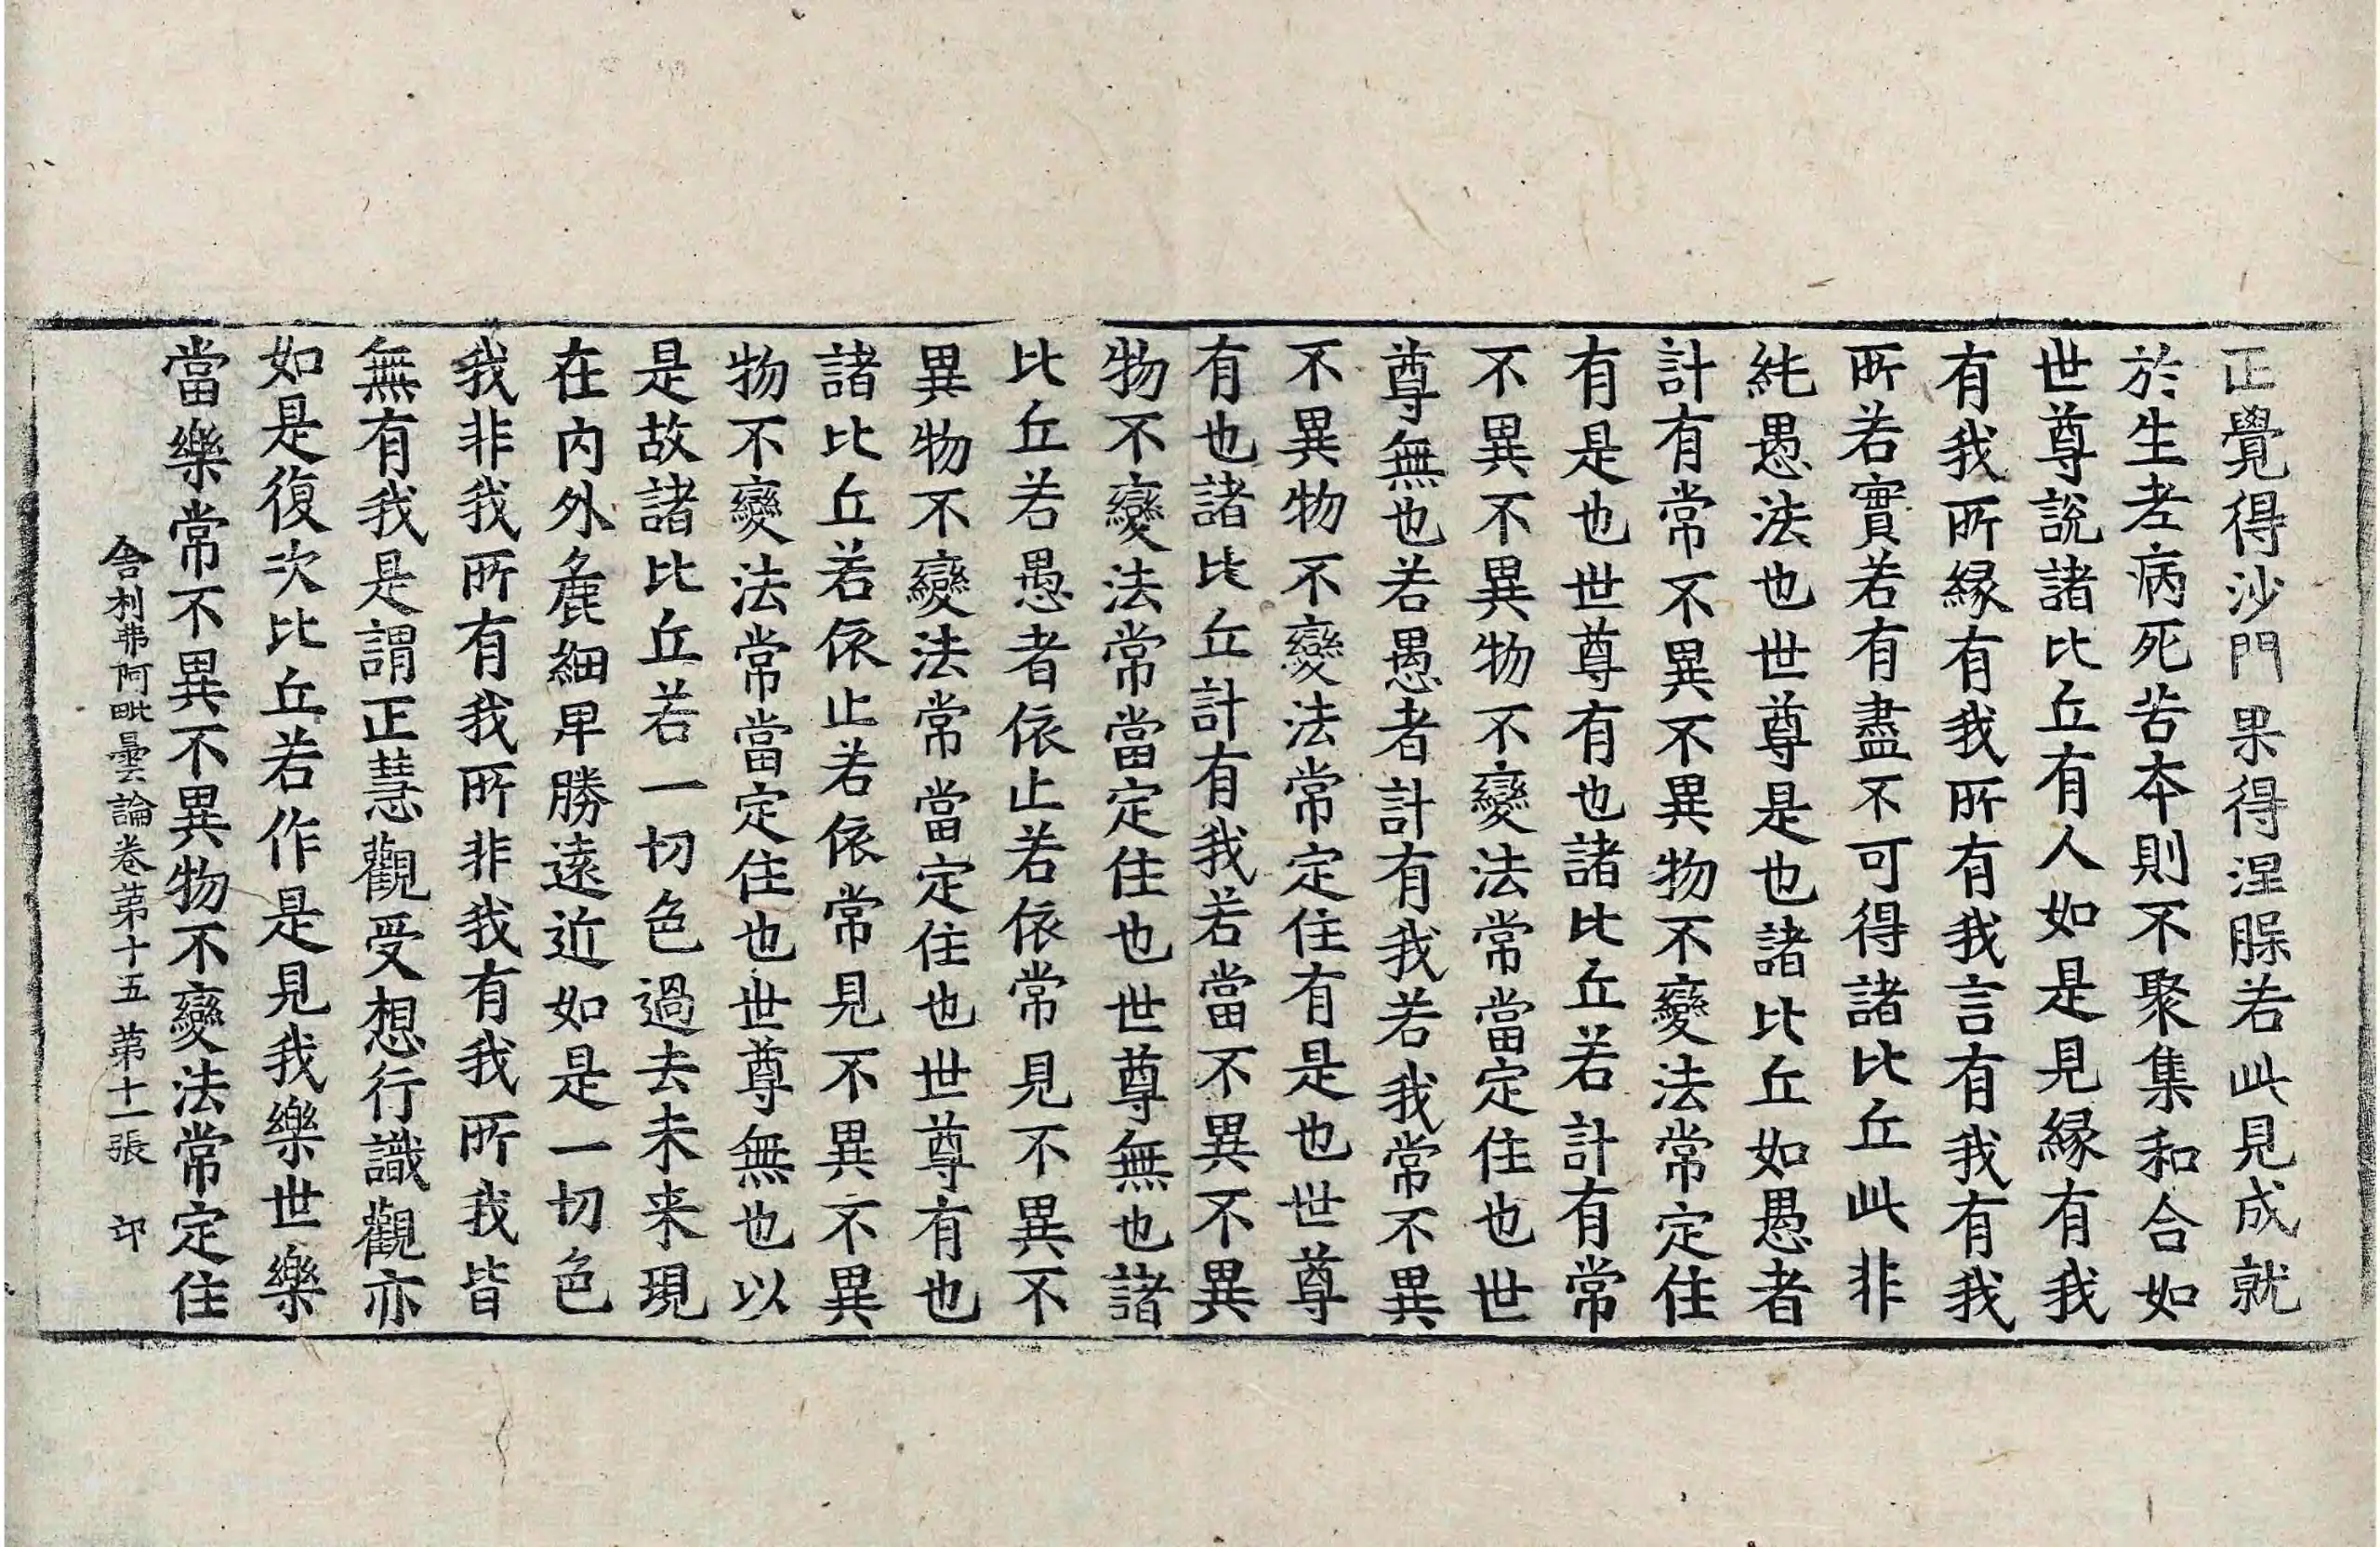 正覺得沙門果得涅脲若此見成就
於生老病死苦本則不聚集和合如
世尊說諸比丘有人如是見縁有我
有我所縁有我所有我言有我有我
所若實若有盡不可得諸比丘此非
純愚法也世尊是也諸比丘如愚者
計有常不異不異物不變法常定住
有是也世尊有也諸比丘若計有常
不異不異物不變法常當定住也世
尊無也若愚者計有我若我常不異
不異物不變法常定住有是也世尊
有也諸比丘計有我若當不異不異
物不變法常當定住也世尊無也諸
比丘若愚者依止若依常見不異不
異物不變法常當定住也世尊有也
諸比丘若依止若依常見不異不異
物不變法常當定住也世尊無也以
是故諸比丘若一切色過去未来現
在内外麁細卑勝遠近如是一切色
我非我所有我所非我有我所我皆
無有我是謂正慧觀受想行識觀亦
如是復次比丘若作是見我樂世樂
當樂常不異不異物不變法常定住
舍利弗阿毗曇論卷苐十五 苐十一張 卬